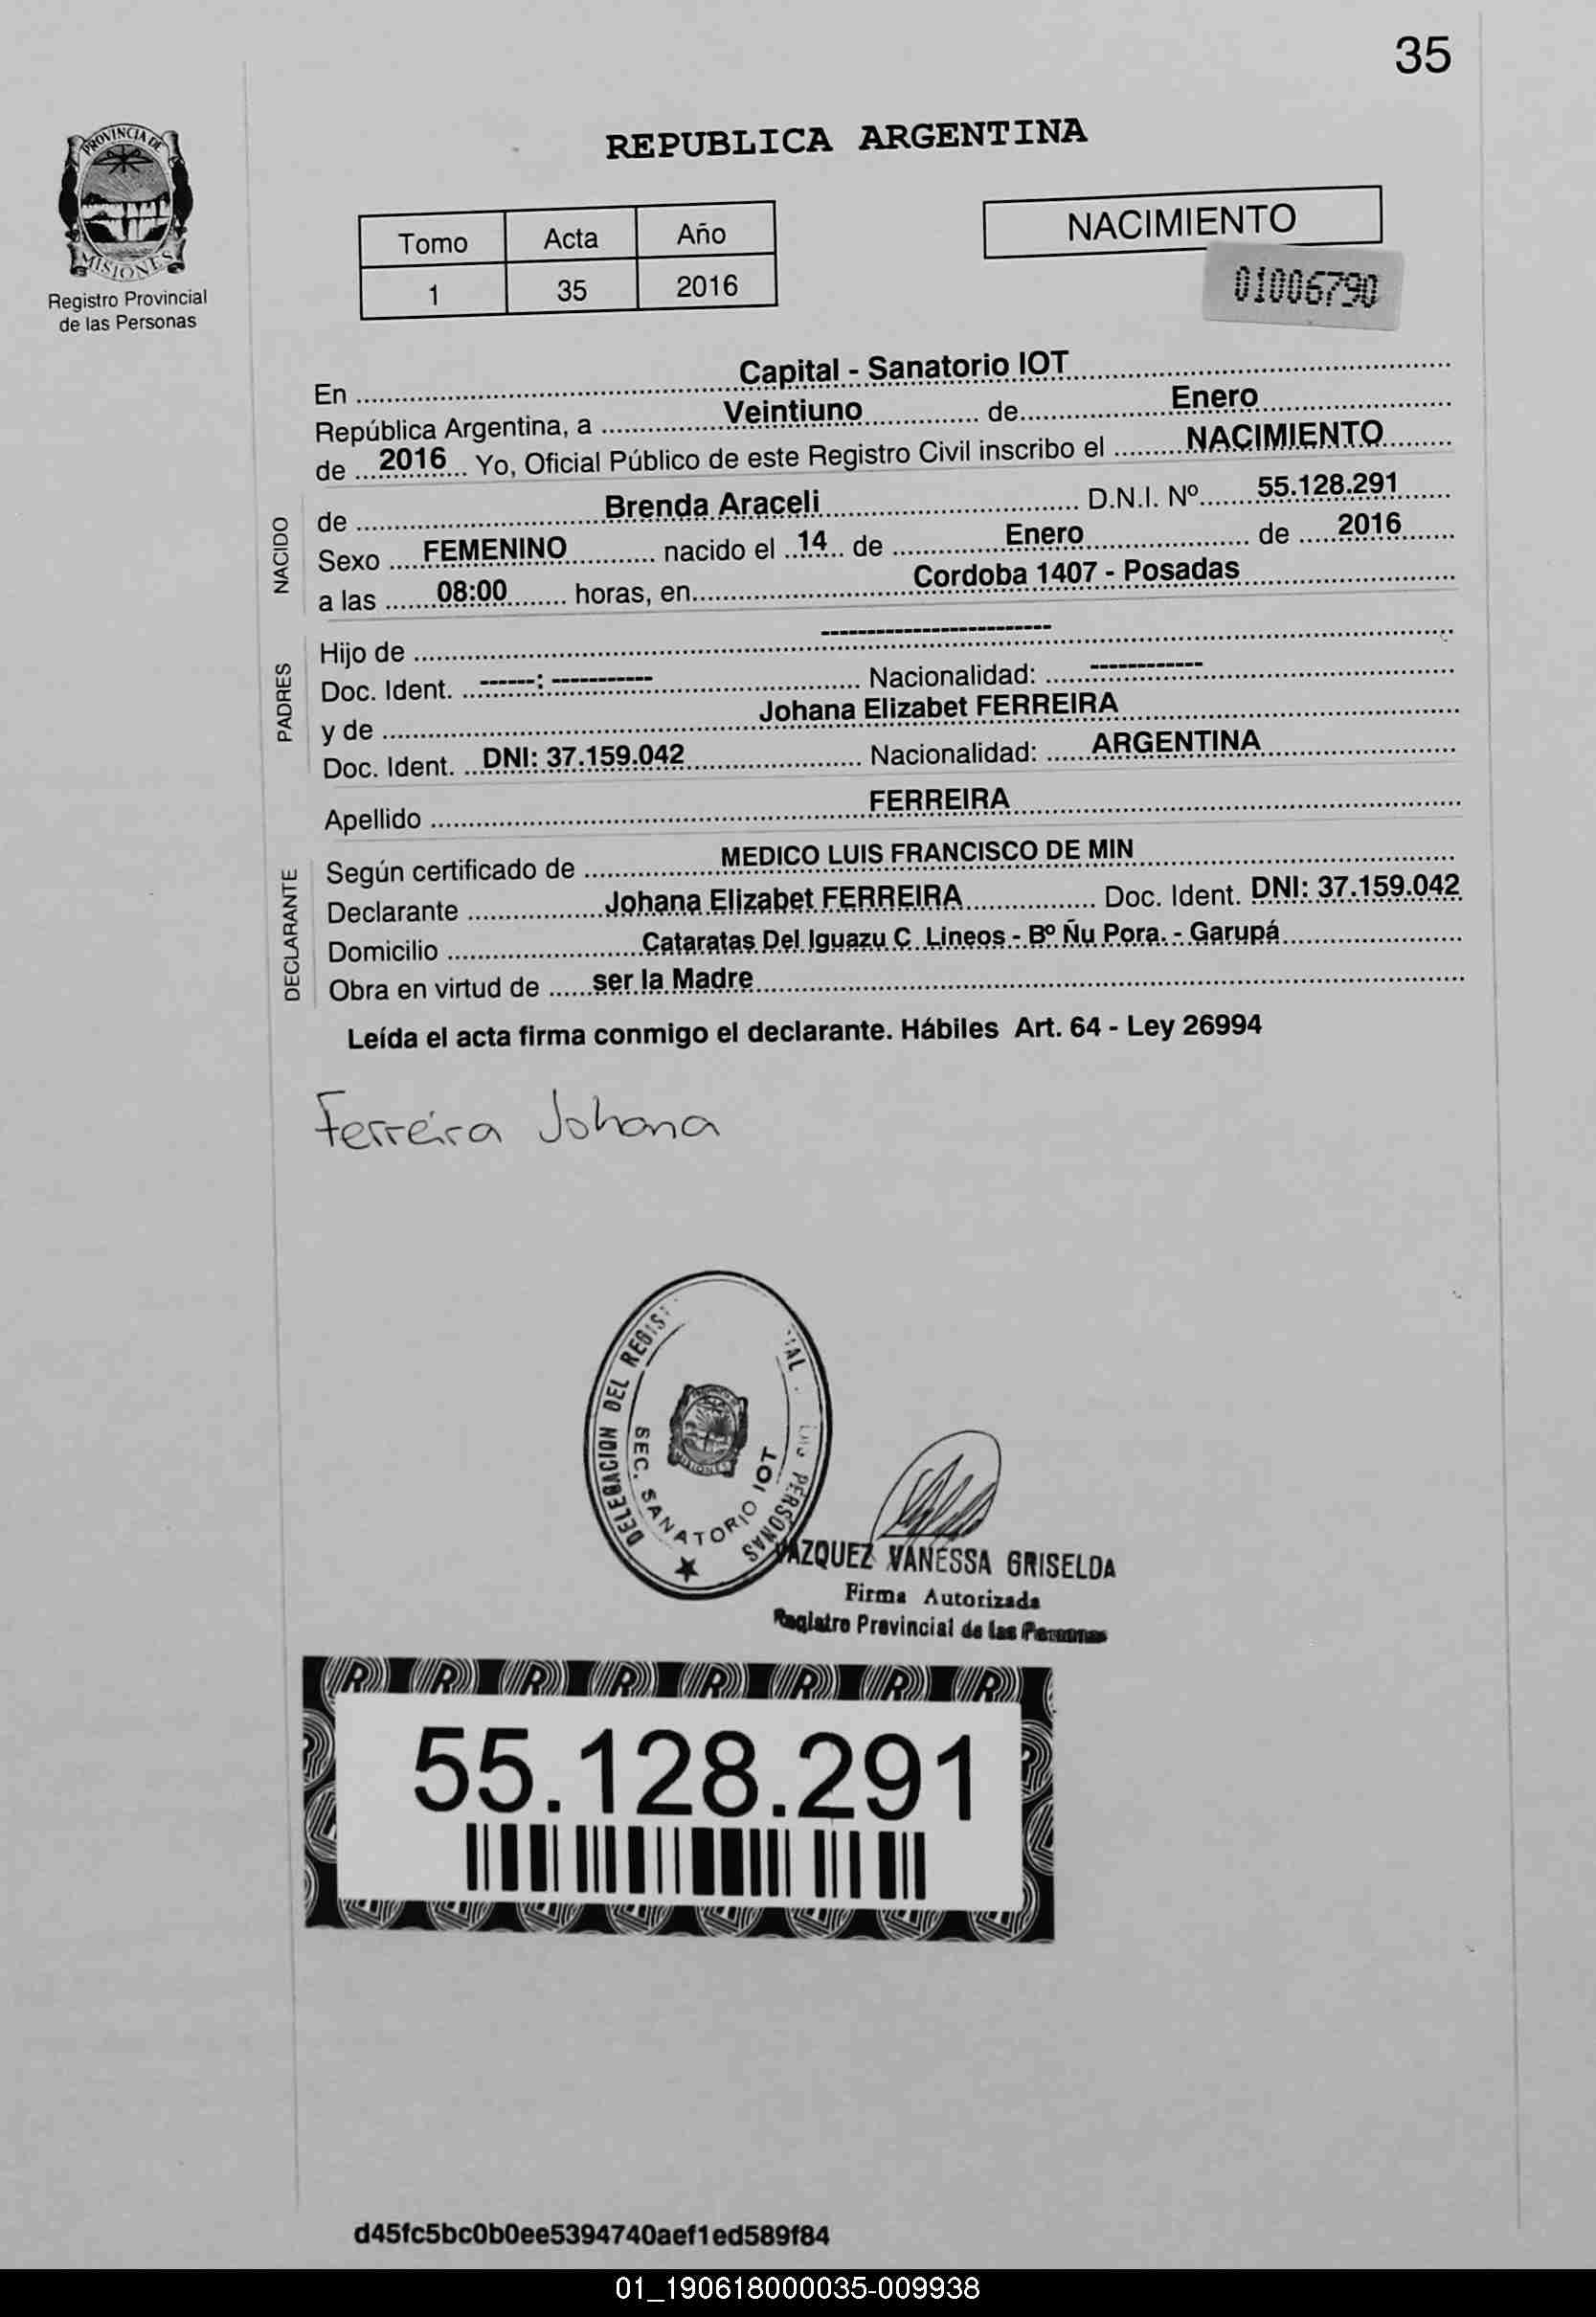 35
PROVINCIA DE
MISIONES
Registro Provincial
de las Personas
REPUBLICA ARGENTINA
Tomo Acta Año
1 35 2016
NACIMIENTO
01006790
En Capital - Sanatorio IOT
República Argentina, a Veintiuno de Enero
de 2016 Yo, Oficial Público de este Registro Civil inscribo el NACIMIENTO
NACIDO
de Brenda Araceli D.N.I. Nº 55.128.291
Sexo FEMENINO nacido el 14 de Enero de 2016
a las 08:00 horas, en Cordoba 1407 - Posadas
PADRES
Hijo de -------------------------
Doc. Ident. ------: ----------- Nacionalidad: ------------
y de Johana Elizabet FERREIRA
Doc. Ident. DNI: 37.159.042 Nacionalidad: ARGENTINA
Apellido FERREIRA
DECLARANTE
Según certificado de MEDICO LUIS FRANCISCO DE MIN
Declarante Johana Elizabet FERREIRA Doc. Ident. DNI: 37.159.042
Domicilio Cataratas Del Iguazu C Lineos - Bº Ñu Pora. - Garupá
Obra en virtud de ser la Madre
Leída el acta firma conmigo el declarante. Hábiles Art. 64 - Ley 26994
Ferreira Johana
DELEGACION DEL PERSONAS
SEC. SANATORIO IOT
MISIONES
VAZQUEZ VANESSA GRISELDA
Firma Autorizada
Registro Provincial de las Personas
55.128.291
d45fc5bc0b0ee5394740aef1ed589f84
01_190618000035-009938